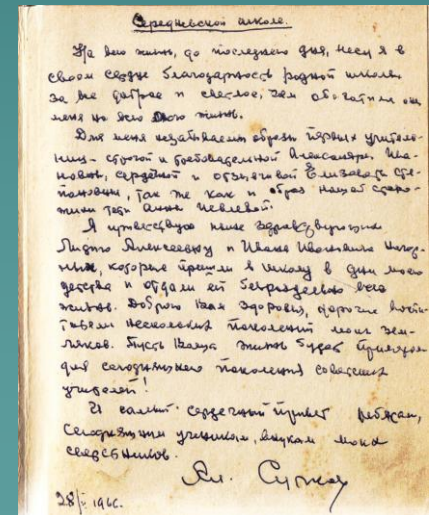 Середневской школе.
На всю жизнь, до последнего дня, несу я в
своем сердце благодарность родной школе
за все доброе и светлое, чем обогатила она
меня на всю мою жизнь.
Для меня незабываемы образы первых учитель-
ниц - строгой и требовательной Александры Ива-
новны, сердечной и отзывчивой Елизаветы Сте-
пановны, так же как и образ нашей сторо-
жихи тети Анны
Я приветствую ныне здравствующих
Лидию Алексеевну и Ивана Ивановича
которые пришли в школу в дни моего
детства и отдали ей безраздельно всю
жизнь. Доброго Вам здоровья, дорогие воспи-
татели нескольких поколений моих зем-
ляков. Пусть Ваша жизнь будет примером
для сегодняшнего поколения советских
учителей!
И самый сердечный привет ребятам,
сегодняшним ученикам, внукам моих
сверстников.
Ал. Сурков
28/ 196